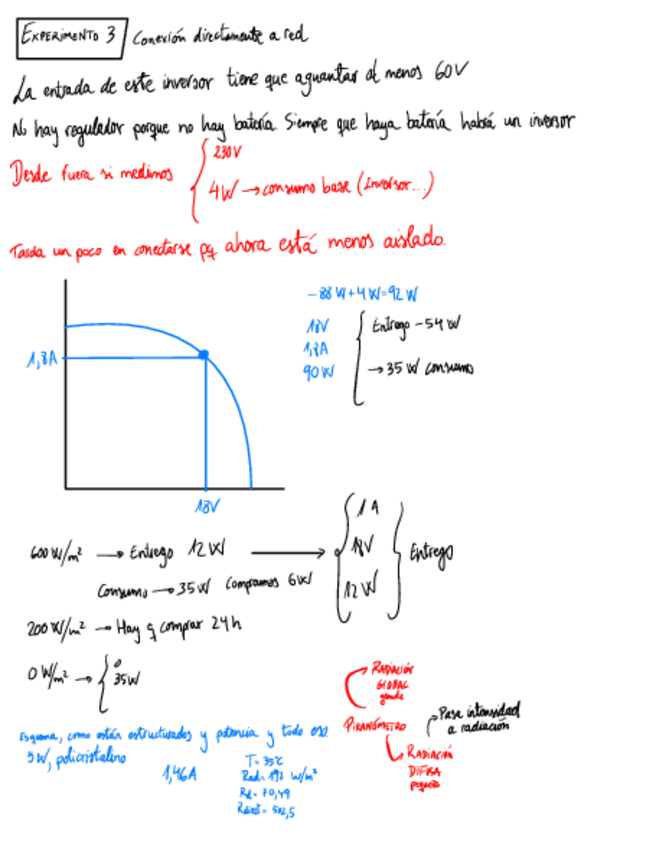 EXPERIMENTO 3 Conexión directamente a red
La entrada de este inversor tiene que aguantar al menos 60V
No hay regulador porque no hay batería. Siempre que haya batería habrá un inversor
Desde fuera si medimos
230V
4W → consumo base (Inversor...)
Tarda un poco en conectarse pq ahora está menos aislado.
-88W+4W=92W
18V
1,8A
90W
Entrego -54W
→ 35W consumo
1,8A
18V
600W/m² → Entrego 12W →
1A
18V
12W
Entrego
Consumo → 35W Compramos 6W
200W/m² → Hay q comprar 24h
0W/m² →
0
35W
Esquema, como están estructurados y potencia y todo eso
5W, policristalino
1,46A
T= 35°C
Rad= 192 W/m²
Rd= 70,49
RADIACIÓN
GLOBAL
grande
PIRANÓMETRO
Pasa intensidad
a radiación
RADIACIÓN
DIFUSA
pequeña